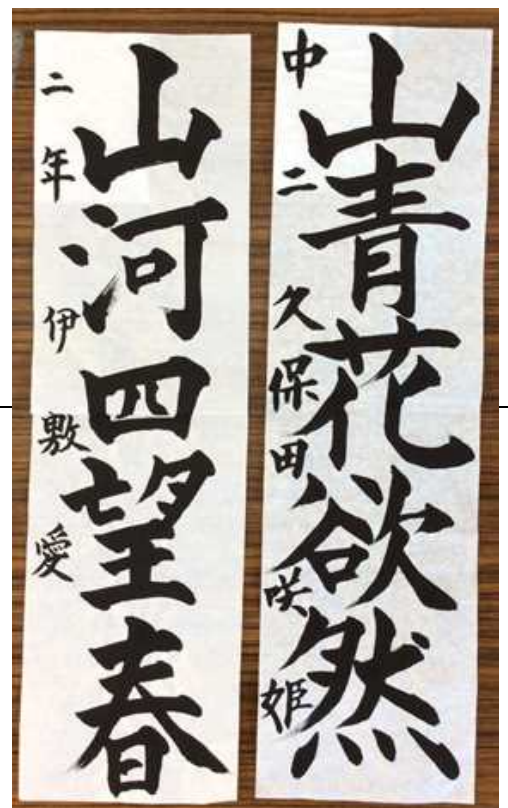 山青花欲然
中二 久保田 咲姫
山河四望春
二年 伊敷 愛